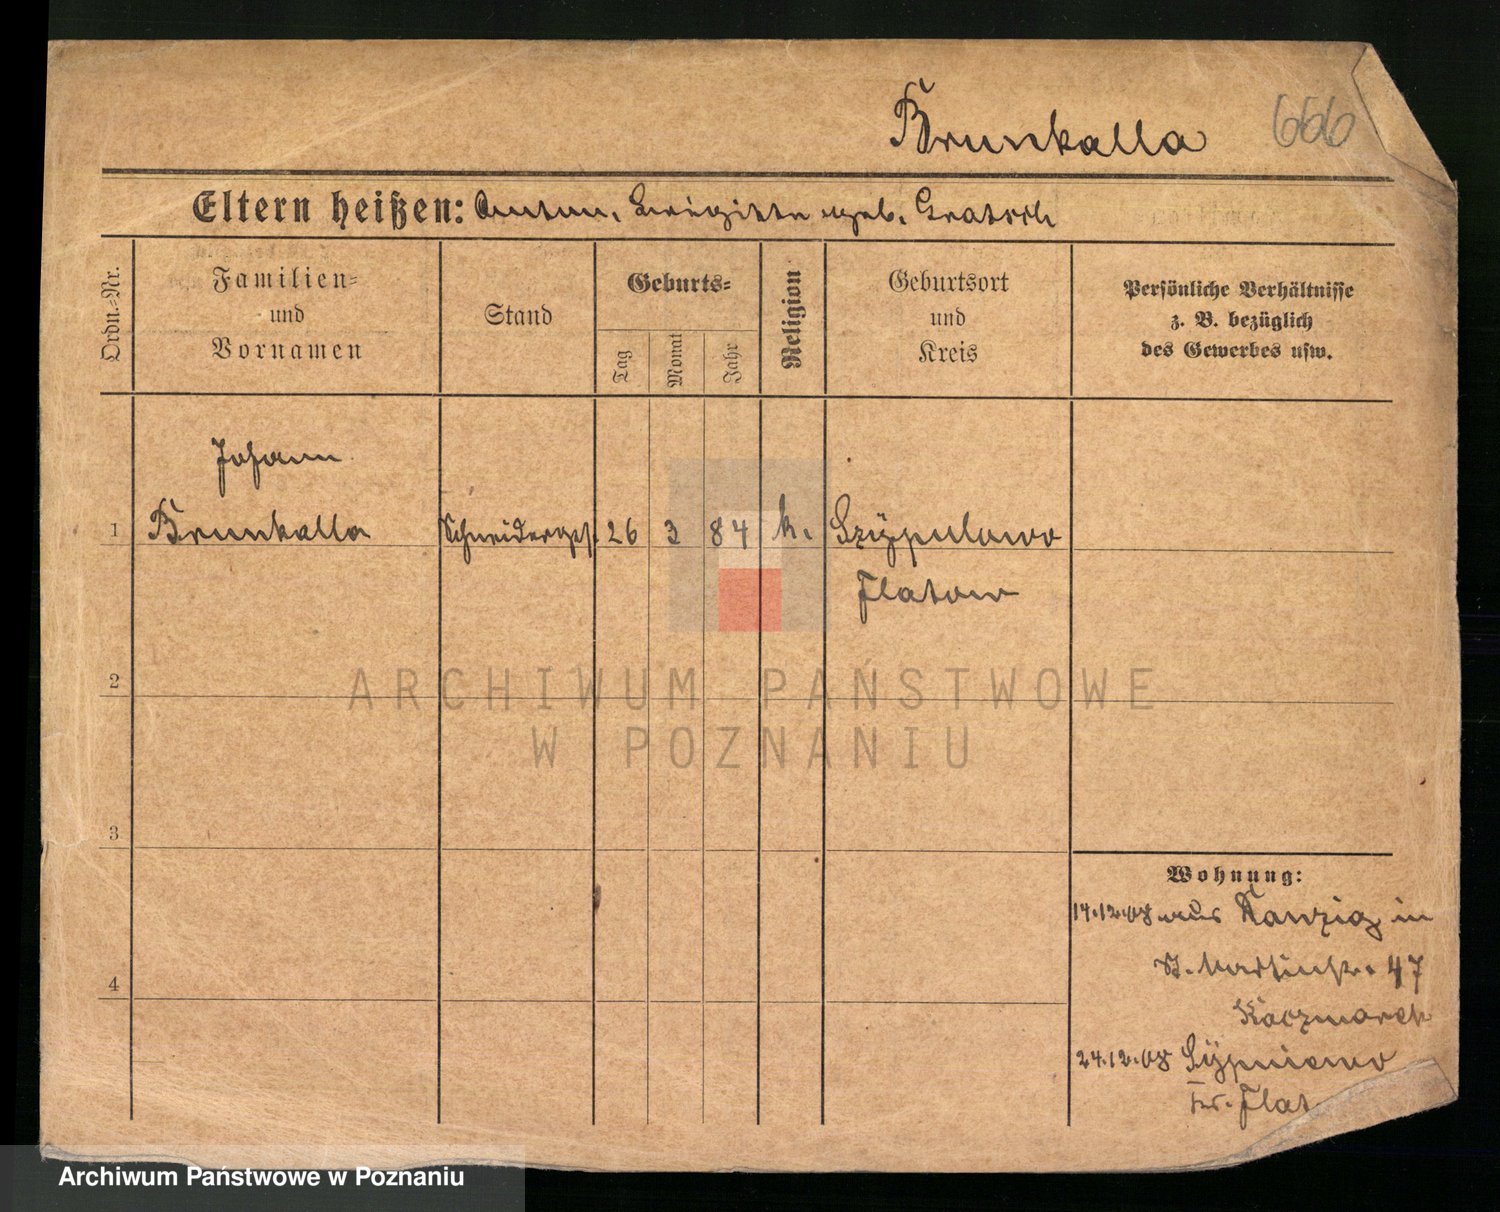 Brunkalla 666
Eltern heißen: Anton, Brigitte geb. Gratsch
Ordn.-Nr.
Familien-
und
Vornamen
Stand
Geburts-
Tag
Monat
Jahr
Religion
Geburtsort
und
Kreis
Persönliche Verhältnisse
z. B. bezüglich
des Gewerbes usw.
Johann
1 Brunkalla Schneiderges. 26 3 84 k.
Flatow
2
3
4
ARCHIWUM PAŃSTWOWE
W POZNANIU
Wohnung:
14.12.08 aus Danzig in
St. Martinstr. 47
Kaczmarek
24.12.08 Sypniewo
Kr. Flat
Archiwum Państwowe w Poznaniu